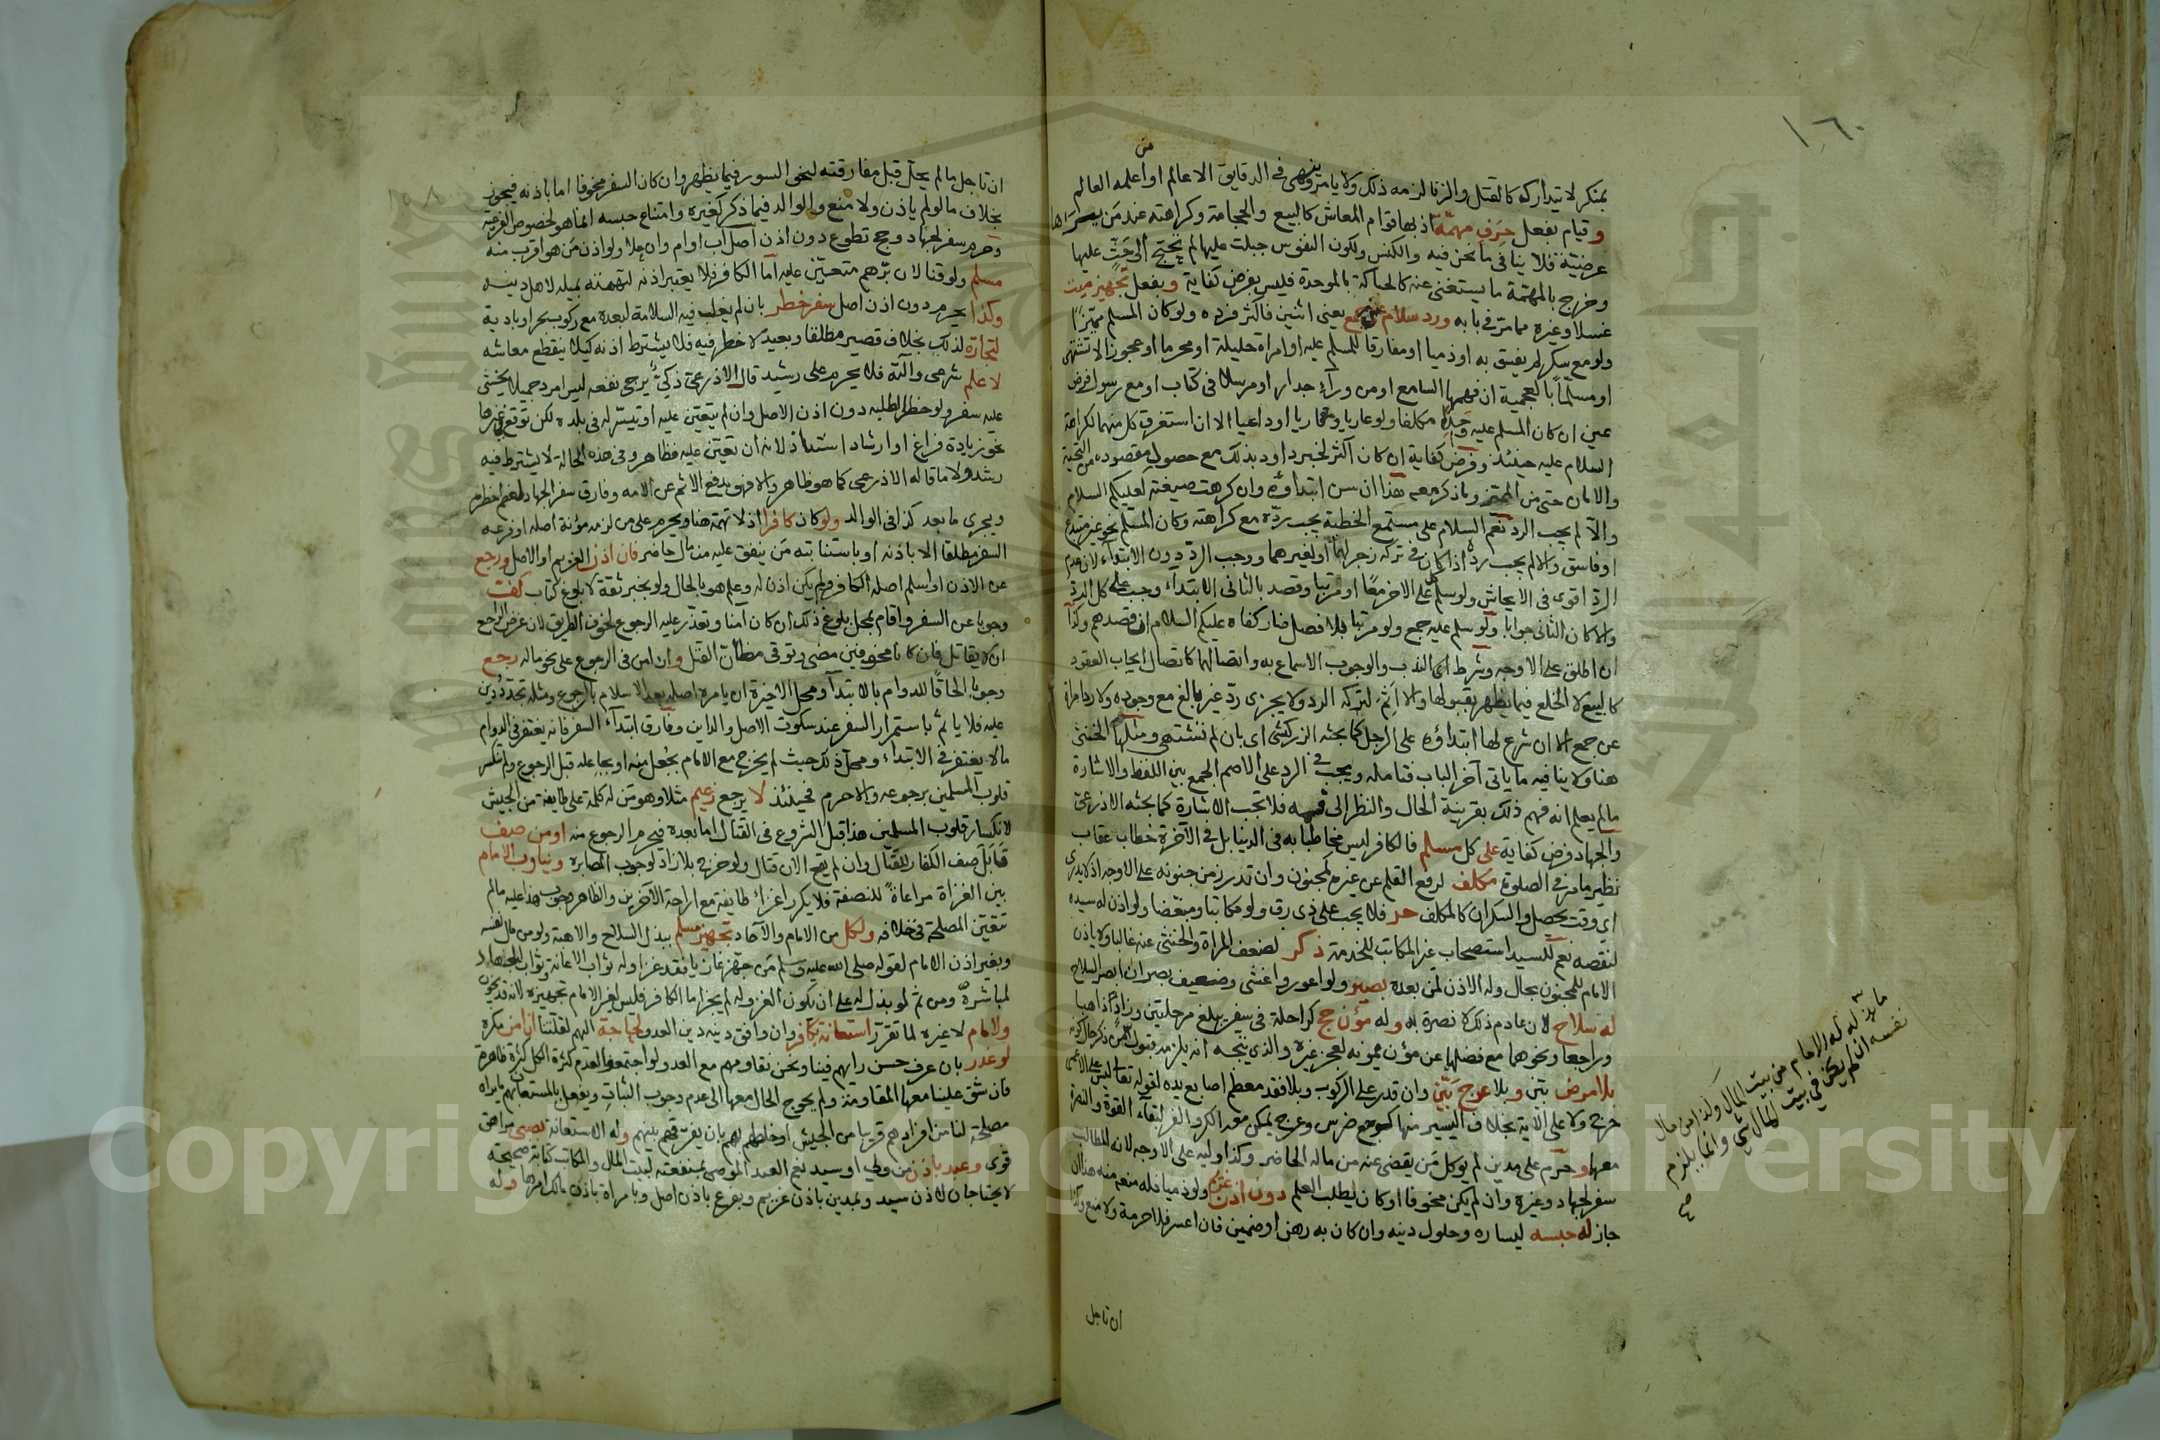 بمنكر لا تيداركه كالقتل والزنا لزمه ذلك ولا يامر وينهى فى الدقايق الا عالم او من اعلمه العالم
و قيام بفعل حرف مهمة اذ بها قوام المعاش كالبيع والحجامة وكراهته عند من يراها
عرضية فلا ينافى ما نحن فيه والكنس ولكون النفوس جبلت عليها لم يحتج الى حث عليها
وخرج بالمهمة ما يستغنى عنه كالحياكة بالموحدة فليس بفرض كفاية وبفعل تجهيز ميت
غسلا وغيره مما مر فى بابه ورد سلام عن جمع يعنى اثنين فاكثر فرده ولو كان المسلم مميزا
ولو مع سكر لم يفسق به او ذميا او مفارقا للمسلم عليه او امراة حليلة او محرما او عجوزا لا تشتهى
او مسلما بالعجمية ان فهمها السامع او من وراء جدار او مرسلا فى كتاب او مع رسول فرض
عين ان كان المسلم عليه وحده مكلفا ولو عاريا او داعيا الا ان استغرق كل منهما لكراهة
السلام عليه حينئذ وفرض كفاية ان كان اكثر لخبر داود بذلك مع حصول مقصوده من التحية
والامان حتى من المميز وما ذكر معه هذا ان سن ابتداؤه وان كرهت صيغته كعليكم السلام
والا لم يجب الرد نعم السلام على مستمع الخطبة يجب رده مع كراهته وكان المسلم نحو غير مبتدع
او فاسق والا لم يجب رده اذا كان فى تركه زجر لهما او لغيرهما ووجب الرد دون الابتداء لان عدم
الرد اقوى فى الايحاش ولو سلم كل على الاخر معا او مرتبا وقصد بالثانى الابتداء وجب على كل الرد
والا كان الثانى جوابا ولو سلم عليه جمع ولو مرتبا بلا فصل ضار كفاه عليكم السلام ان قصدهم وكذا
ان اطلق على الاوجه وشرط اى الندب والوجوب الاسماع به واتصالها كاتصال ايجاب العقود
كالبيع لا الخلع فيما يظهر بقبولها والا اثم لتركه الرد ولا يجزى رد غير بالغ مع وجوده ولا رد امراة
عن جمع الا ان شرع لها ابتداؤه على الرجل كما بحثه الزركشى اى بان لم تشتهى ومثلها الخنثى
هنا ولا ينافيه ما ياتى آخر الباب فتامله ويجب فى الرد على الاصم الجمع بين اللفظ والاشارة
مالم يعلم انه فهم ذلك بقرينة الحال والنظر الى فمه فلا تجب الاشارة كما بحثه الاذرعى
والجهاد فرض كفاية على كل مسلم فالكافر ليس مخاطبا به فى الدنيا بل فى الآخرة خطاب عقاب
نظير مامر فى الصلوة مكلف لرفع القلم عن غيره كمجنون وان تدرى زمن جنونه على الاوجه اذ لا يدرى
اى وقت يحصل والسكران كالمكلف حر فلا يجب على ذى رق ولو مكاتبا ومبعضا ولو اذن له سيده
لنقصه نعم للسيد استصحاب غير المكاتب للخدمة ذكر لضعف المراة والخنثى عنه غالبا ولا ياذن
الامام للمجنون بحال وله الاذن لمن بعده بصير ولو اعور واعشى وضعيف بصر ان ابصر السلاح
له سلاح لان عادم ذلك لا نصرة به وله مؤن حج كراحلة فى سفر يبلغ مرحلتين وزاد ذاهبا
وراجعا ونحوهما مع فضلها عن مؤن ممونه لعجز غيره والذى يتجه انه يلزمه قبول
بلا مرض بين وبلا عرج بين وان قدر على الركوب وبلا فقد معظم اصابع يده لقوله تعالى ليس على الاعمى
حرج ولا على الآية بخلاف اليسير منها كوجع ضرس وعرج يمكن معه الكر والفر لبقاء القوة والنصرة
معها وحرم على مدين لم يوكل من يقضى عنه من ماله الحاضر وكذا وليه على الاوجه لانه المطالب
سفر لجهاد وغيره وان لم يكن مخوفا او كان لطلب العلم دون اذن غريم ولو ذميا فله منعه منه هذا ان
جاز له حبسه ليساره وحلول دينه وان كان به رهن او ضمين فان اعسر فلا حرمة ولا منع وكذا
ان تاجل
ما بذله له الامام من بيت المال وكذا من مال
نفسه ان لم يكن فى بيت المال شئ وانما يلزم
صح
ان تاجل مالم يحل قبل مفارقته لنحو السور فيما يظهر وان كان السفر مخوفا اما باذنه فيجوز
بخلاف ما لو لم ياذن ولا منع والوالد فيما ذكر كغيره وامتناع حبسه انما هو لخصوص الفرعية
وحرم سفر لجهاد وحج تطوع دون اذن اصل اب او ام وان علا ولو اذن من هو اقرب منه
مسلم ولو قنا لان برهم متعين عليه اما الكافر فلا يعتبر اذنه لتهمته بميله لاهل دينه
وكذا يحرم دون اذن اصل سفر خطر بان لم يغلب فيه السلامة لبعده مع ركوب بحر او بادية
لتجارة لذلك بخلاف قصير مطلقا وبعيد لا خطر فيه فلا يشترط اذنه كيلا ينقطع معاشه
لا علم شرعى وآلته فلا يحرم على رشيد قال الاذرعى ذكى يرجى نفعه ليس امرد جميلا يخشى
عليه سفر ولو خطر لطلبه دون اذن الاصل وان لم يتعين عليه او تيسر له فى بلده لكن توقع فى غيرها
نحو زيادة فراغ او ارشاد استاذ لانه ان تعين عليه فظاهر وفى هذه الحالة لا يشترط فيه
رشد ولا ما قاله الاذرعى كما هو ظاهر والا فهو يدفع الاثم عن الامه وفارق سفر الجهاد لعظم خطره
ويجرى ما بعد كذا فى الوالد ولو كان كافرا اذ لا تهمة هنا ويحرم على من لزمه مؤنة اصله او فرعه
السفر مطلقا الا باذنه او باستنابته من ينفق عليه من مال حاضر فان اذن الغريم او الاصل ورجع
عن الاذن او اسلم اصله الكافر ولم يكن اذن له وعلم هو بالحال ولو بخبر ثقة لا بلوغ كتاب كفت
وجوبا عن السفر واقام بمحل بلوغ ذلك ان كان آمنا وتعذر عليه الرجوع لخوف الطريق لان غرض الراجع
ان لا يقاتل فان كانا مخوفين مضى وتوقى مظان القتل وان امن فى الرجوع على نحو ماله رجع
وجوبا الحاقا للدوام بالابتداء ومحل الاخيرة ان يامره اصله بعد الاسلام بالرجوع ومثله تجدد دين
عليه فلا ياثم باستمرار السفر عند سكوت الاصل والداين وفارق ابتداء السفر فانه يغتفر فى الدوام
مالا يغتفر فى الابتداء ومحل ذلك حيث لم يخرج مع الامام بجعل منه او بجاعله قبل الرجوع ولم تنكسر
قلوب المسلمين برجوعه والا حرم فحينئذ لا يرجع زعيم مثلا وهو من له كلمة على طايفة من الجيش
لانكسار قلوب المسلمين هذا قبل الشروع فى القتال اما بعده فيحرم الرجوع منه او من صف
قابل صف الكفار للقتال وان لم يقع الآن قتال ولو خرج بلا زاد لوجوب المصابرة ويناوب الامام
بين الغزاة مراعاة للنصفة فلا يكرر اغزاء طايفة مع اراحة الآخرين والظاهر وجوب هذا عليه مالم
تتعين المصلحة فى خلافه ولكل من الامام والآحاد تجهيز مسلم ببذل السلاح والاهبة ولو من مال نفسه
وبغير اذن الامام لقوله صلى الله عليه وسلم من جهز غازيا فقد غزا وله ثواب الاعانة وثواب الجهاد
لمباشره ومن ثم لو بذل له على ان يكون الغزو له لم يجز اما الكافر فليس لغير الامام تجهيزه لانه قد يخون
والامام لا غيره لما تقرر استعانة بكافر وان وافق دينه دين العدو لحاجة اليهم لقلتنا ان امن مكره
لو غدر بان عرف حسن رايهم فينا ونحن نقاومهم مع العدو لو اجتمعوا لعدم كثرة الكل كثرة ظاهرة
فان شق علينا معها المقاومة ولم يحوج الحال معها الى عدم وجوب الثبات ويفعل بالمستعان بهم ما يراه
مصلحة لنا من افرادهم قريبا من الجيش او خلطهم بهم بان يفرقهم بينهم وله الاستعانة بصبى مراهق
قوى وعبد باذن من ولى او سيد نعم العبد الموصى بمنفعته لبيت المال والمكاتب كتابة صحيحة
لا يحتاجان لاذن سيد وبمدين باذن غريم وبفرع باذن اصل وبامراة باذن مالك امرها وله
Copyright King Saud University